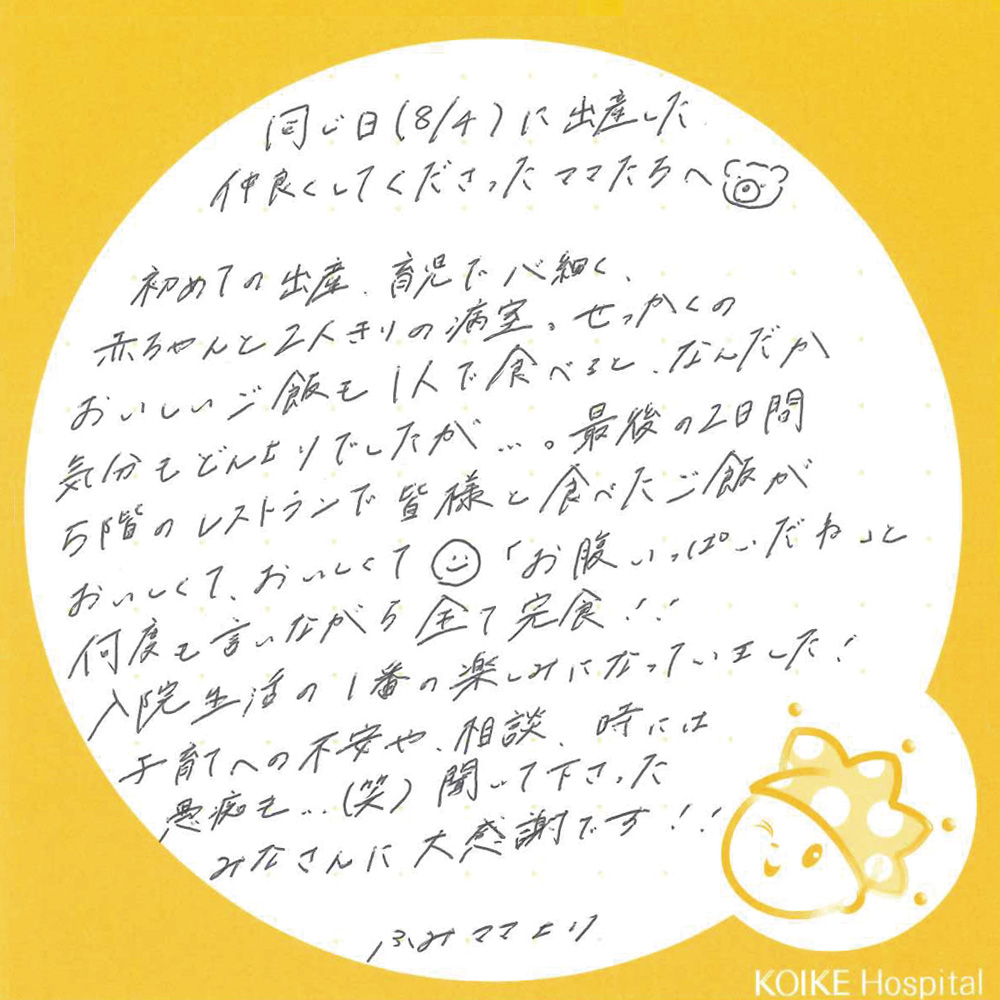 同じ日(8/4)に出産した
仲良くしてくださったママたちへ
初めての出産、育児で心細く、
赤ちゃんと2人きりの病室。せっかくの
おいしいご飯も1人で食べると、なんだか
気分もどんよりでしたが…。最後の2日間
5階のレストランで皆様と食べたご飯が
おいしくて、おいしくて「お腹いっぱいだね」と
何度も言いながら全て完食!!
入院生活の1番の楽しみになっていました!
子育てへの不安や、相談、時には
愚痴も…(笑)聞いて下さった
みなさんに大感謝です!!
ふみママより
KOIKE Hospital